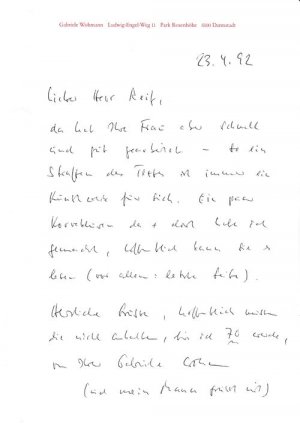 Gabriele Wohmann Ludwig-Engel-Weg 11 Park Rosenhöhe 6100 Darmstadt
23.4.92
Lieber Herr Reif,
da hat Ihre Frau aber schnell
und gut gearbeitet – so ein
Straffen des Textes ist immer ein
Kunstwerk für sich. Ein paar
Korrekturen da + dort habe ich
gemacht, hoffentlich kann Sie es
lesen (vor allem: letzte Seite).
Herzliche Grüsse, hoffentlich müssen
Sie nicht anhalten, bis ich 70 werde,
von Ihrer Gabriele Wohmann
(und mein Mann grüsst mit)